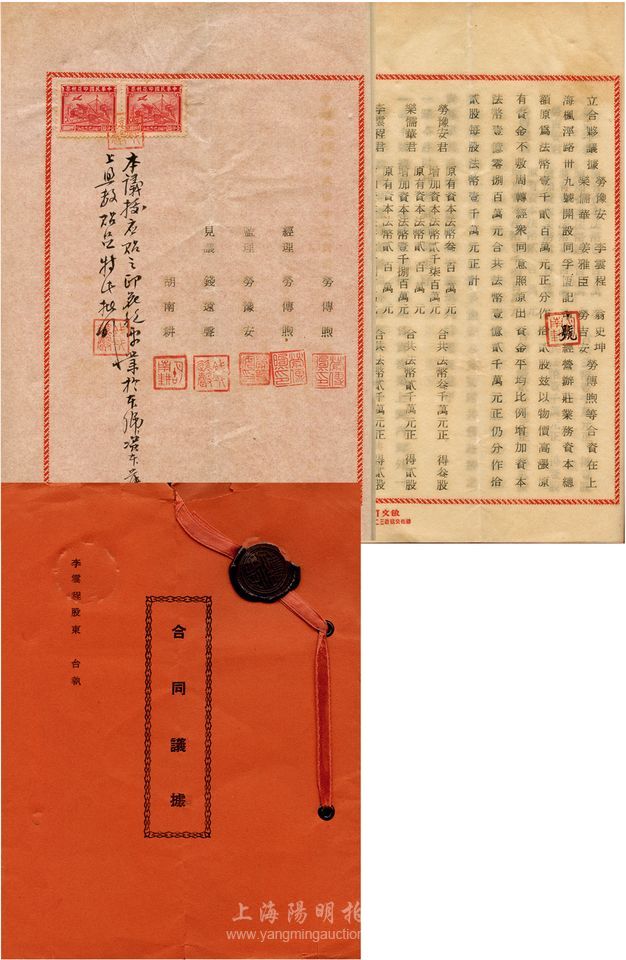 立合夥議據 勞豫安 李雲程 翁史坤 勞傳煦等合資在上
樂儒華 姜雅臣 勞吉安
海楓涇路卅九號開設同孚恆記 號 經營辦莊業務資本總
額原為法幣壹千貳百萬元正分作拾貳股玆以物價高漲原
有資金不敷周轉經衆同意照原出資金平均比例增加資本
法幣壹億零捌百萬元合共法幣壹億貳千萬元正仍分作拾
貳股每股法幣壹千萬元正計
勞豫安君 原有資本法幣叁百萬元 增加資本法幣貳千柒百萬元 合共法幣叁千萬元正 得叁股
樂儒華君 原有資本法幣貳百萬元 增加資本法幣壹千捌百萬元 合共法幣貳千萬元正 得貳股
李雲程君 原有資本法幣貳百萬元 合共法幣貳千萬元正 得貳股
敏文
中華民國印花稅票
中華民國印花稅票
經理 勞傳煦
監理 勞豫安
見議 錢遠聲
胡南耕
本議據應貼之印花
合同議據
李雲程股東 台執
上海陽明拍
www.yangmingauction